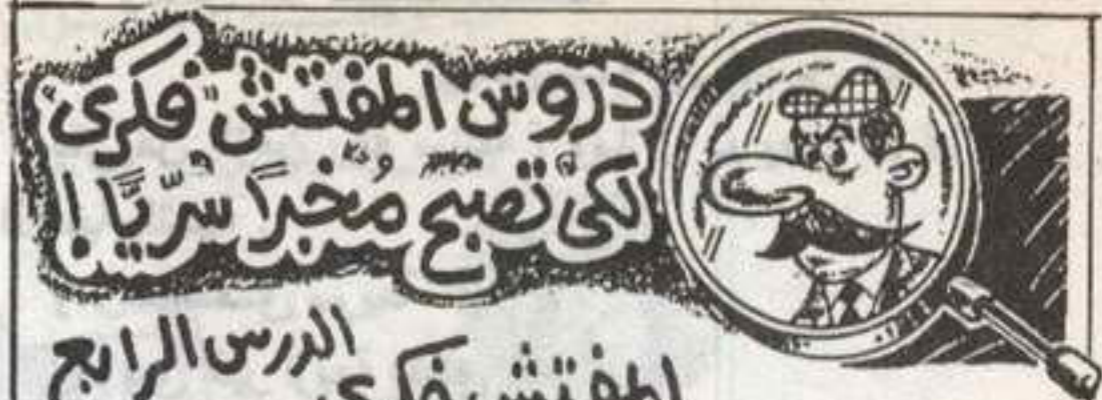 دروس المفتش فكرى
لكى تصبح مُخبرًا سرّيًا !
الدرس الرابع
المفتش فكرى